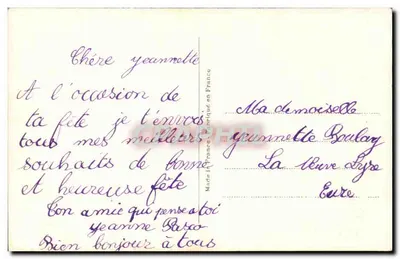 Chére yeannette
A l'occasion de
ta fête je t'envois
tous mes meilleurs
souhaits de bonne
et heureuse fête
Ton amie qui pense a toi
yeanne
Bien bonjour à tous
Made in France Fabriqué en France
Mademoiselle
yeannette
La
Eure